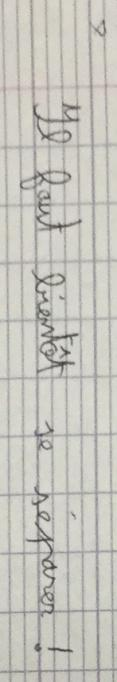 Il faut bientôt se séparer !